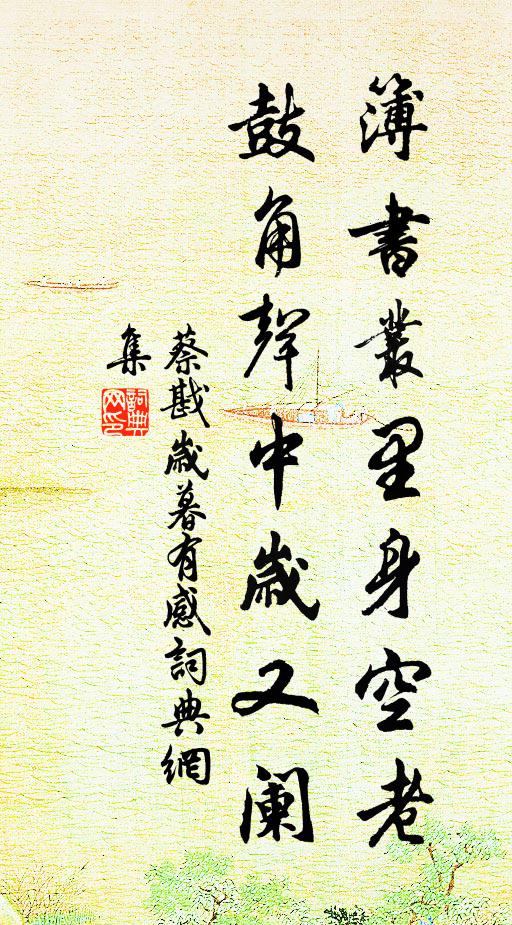 簿書叢里身空老
鼓角聲中歲又阑
蔡戡歲暮有感詞典網
集
詞典
网印